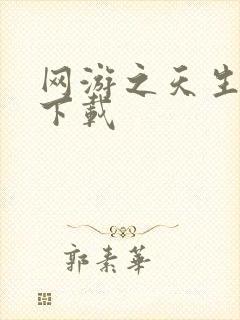 网游之天生
下载
郭素华